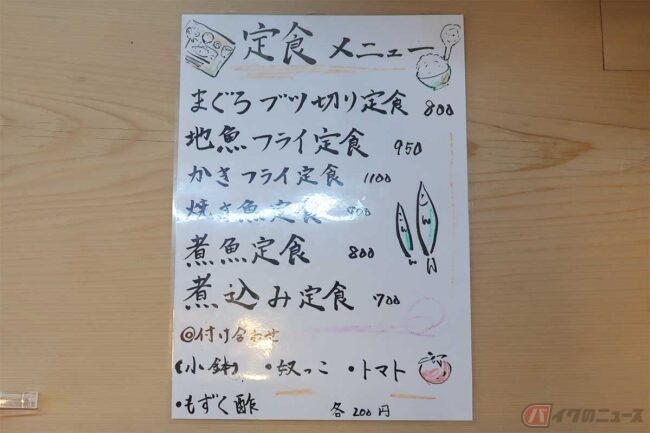 定食メニュー
まぐろブツ切り定食 800
地魚フライ定食 950
かきフライ定食 1100
焼き魚定食
煮魚定食 800
煮込み定食 700
◎付け合わせ
・小鉢 ・奴っこ ・トマト
・もずく酢 各200円
バイクのニュース